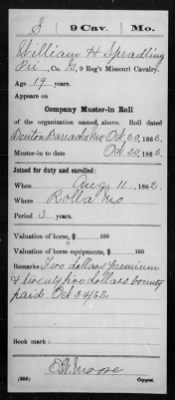 S | 9 Cav. | Mo.
William H Spradling
Pvt, Co. G, 9 Reg't Missouri Cavalry.
Age 19 years.
Appears on
Company Muster-in Roll
of the organization named above. Roll dated
Benton Barracks Mo Oct 20, 1862.
Muster-in to date Oct 20, 1862
Joined for duty and enrolled:
When Aug 11, 1862.
Where Rolla Mo
Period 3 years.
Valuation of horse, $ 100
Valuation of horse equipments, $ 100
Remarks: Two dollars premium
& twenty five dollars bounty
paid Oct 24/62
Book mark:
Moore
(356) Copyist.